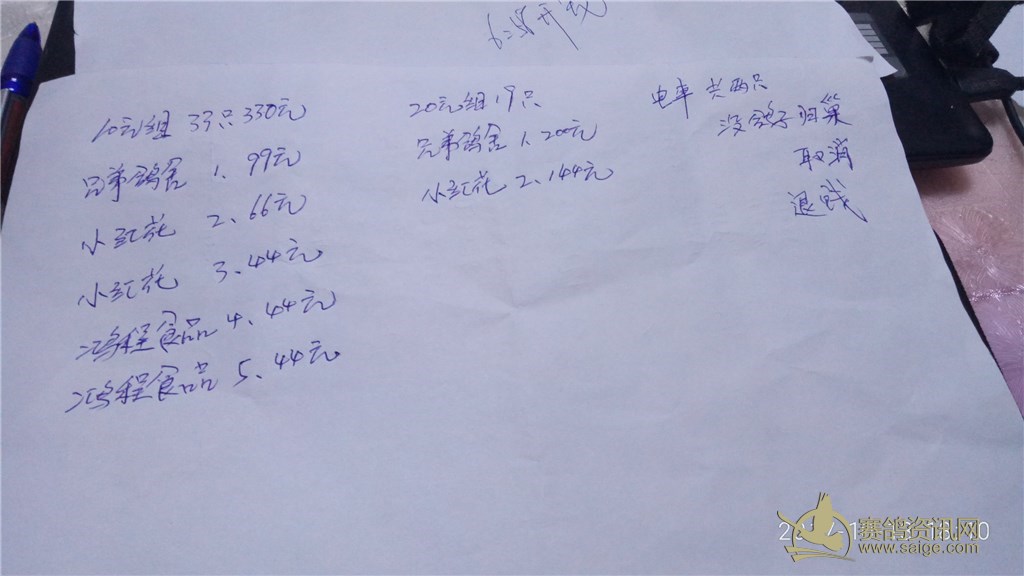 10元组 33只330元
兄弟鸽舍 1、99元
小红花 2、66元
小红花 3、44元
鸿程食品 4、44元
鸿程食品 5、44元
20元组19只
兄弟鸽舍 1、200元
小红花 2、144元
电车 共两只
没鸽子归巢
取消
退钱
赛鸽资讯网
www.saige.com